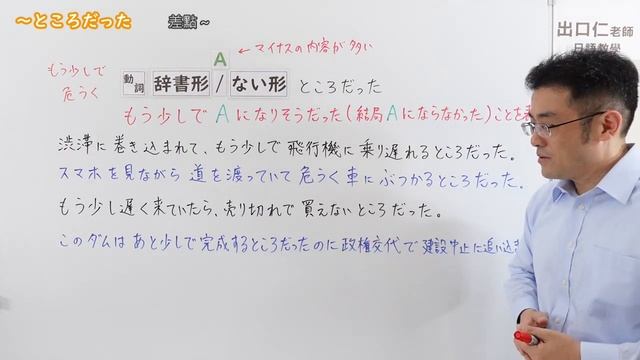 ～ところだった 差點～
出口仁老師
日語教學
A ← マイナスの内容が多い
もう少しで
危うく
動詞 辞書形 / ない形 ところだった
もう少しで A になりそうだった(結局 A にならなかった)ことを
渋滞に巻き込まれて、もう少しで飛行機に乗り遅れるところだった。
スマホを見ながら道を渡っていて危うく車にぶつかるところだった。
もう少し遅く来ていたら、売り切れで買えないところだった。
このダムはあと少しで完成するところだったのに政権交代で建設中止に追い込